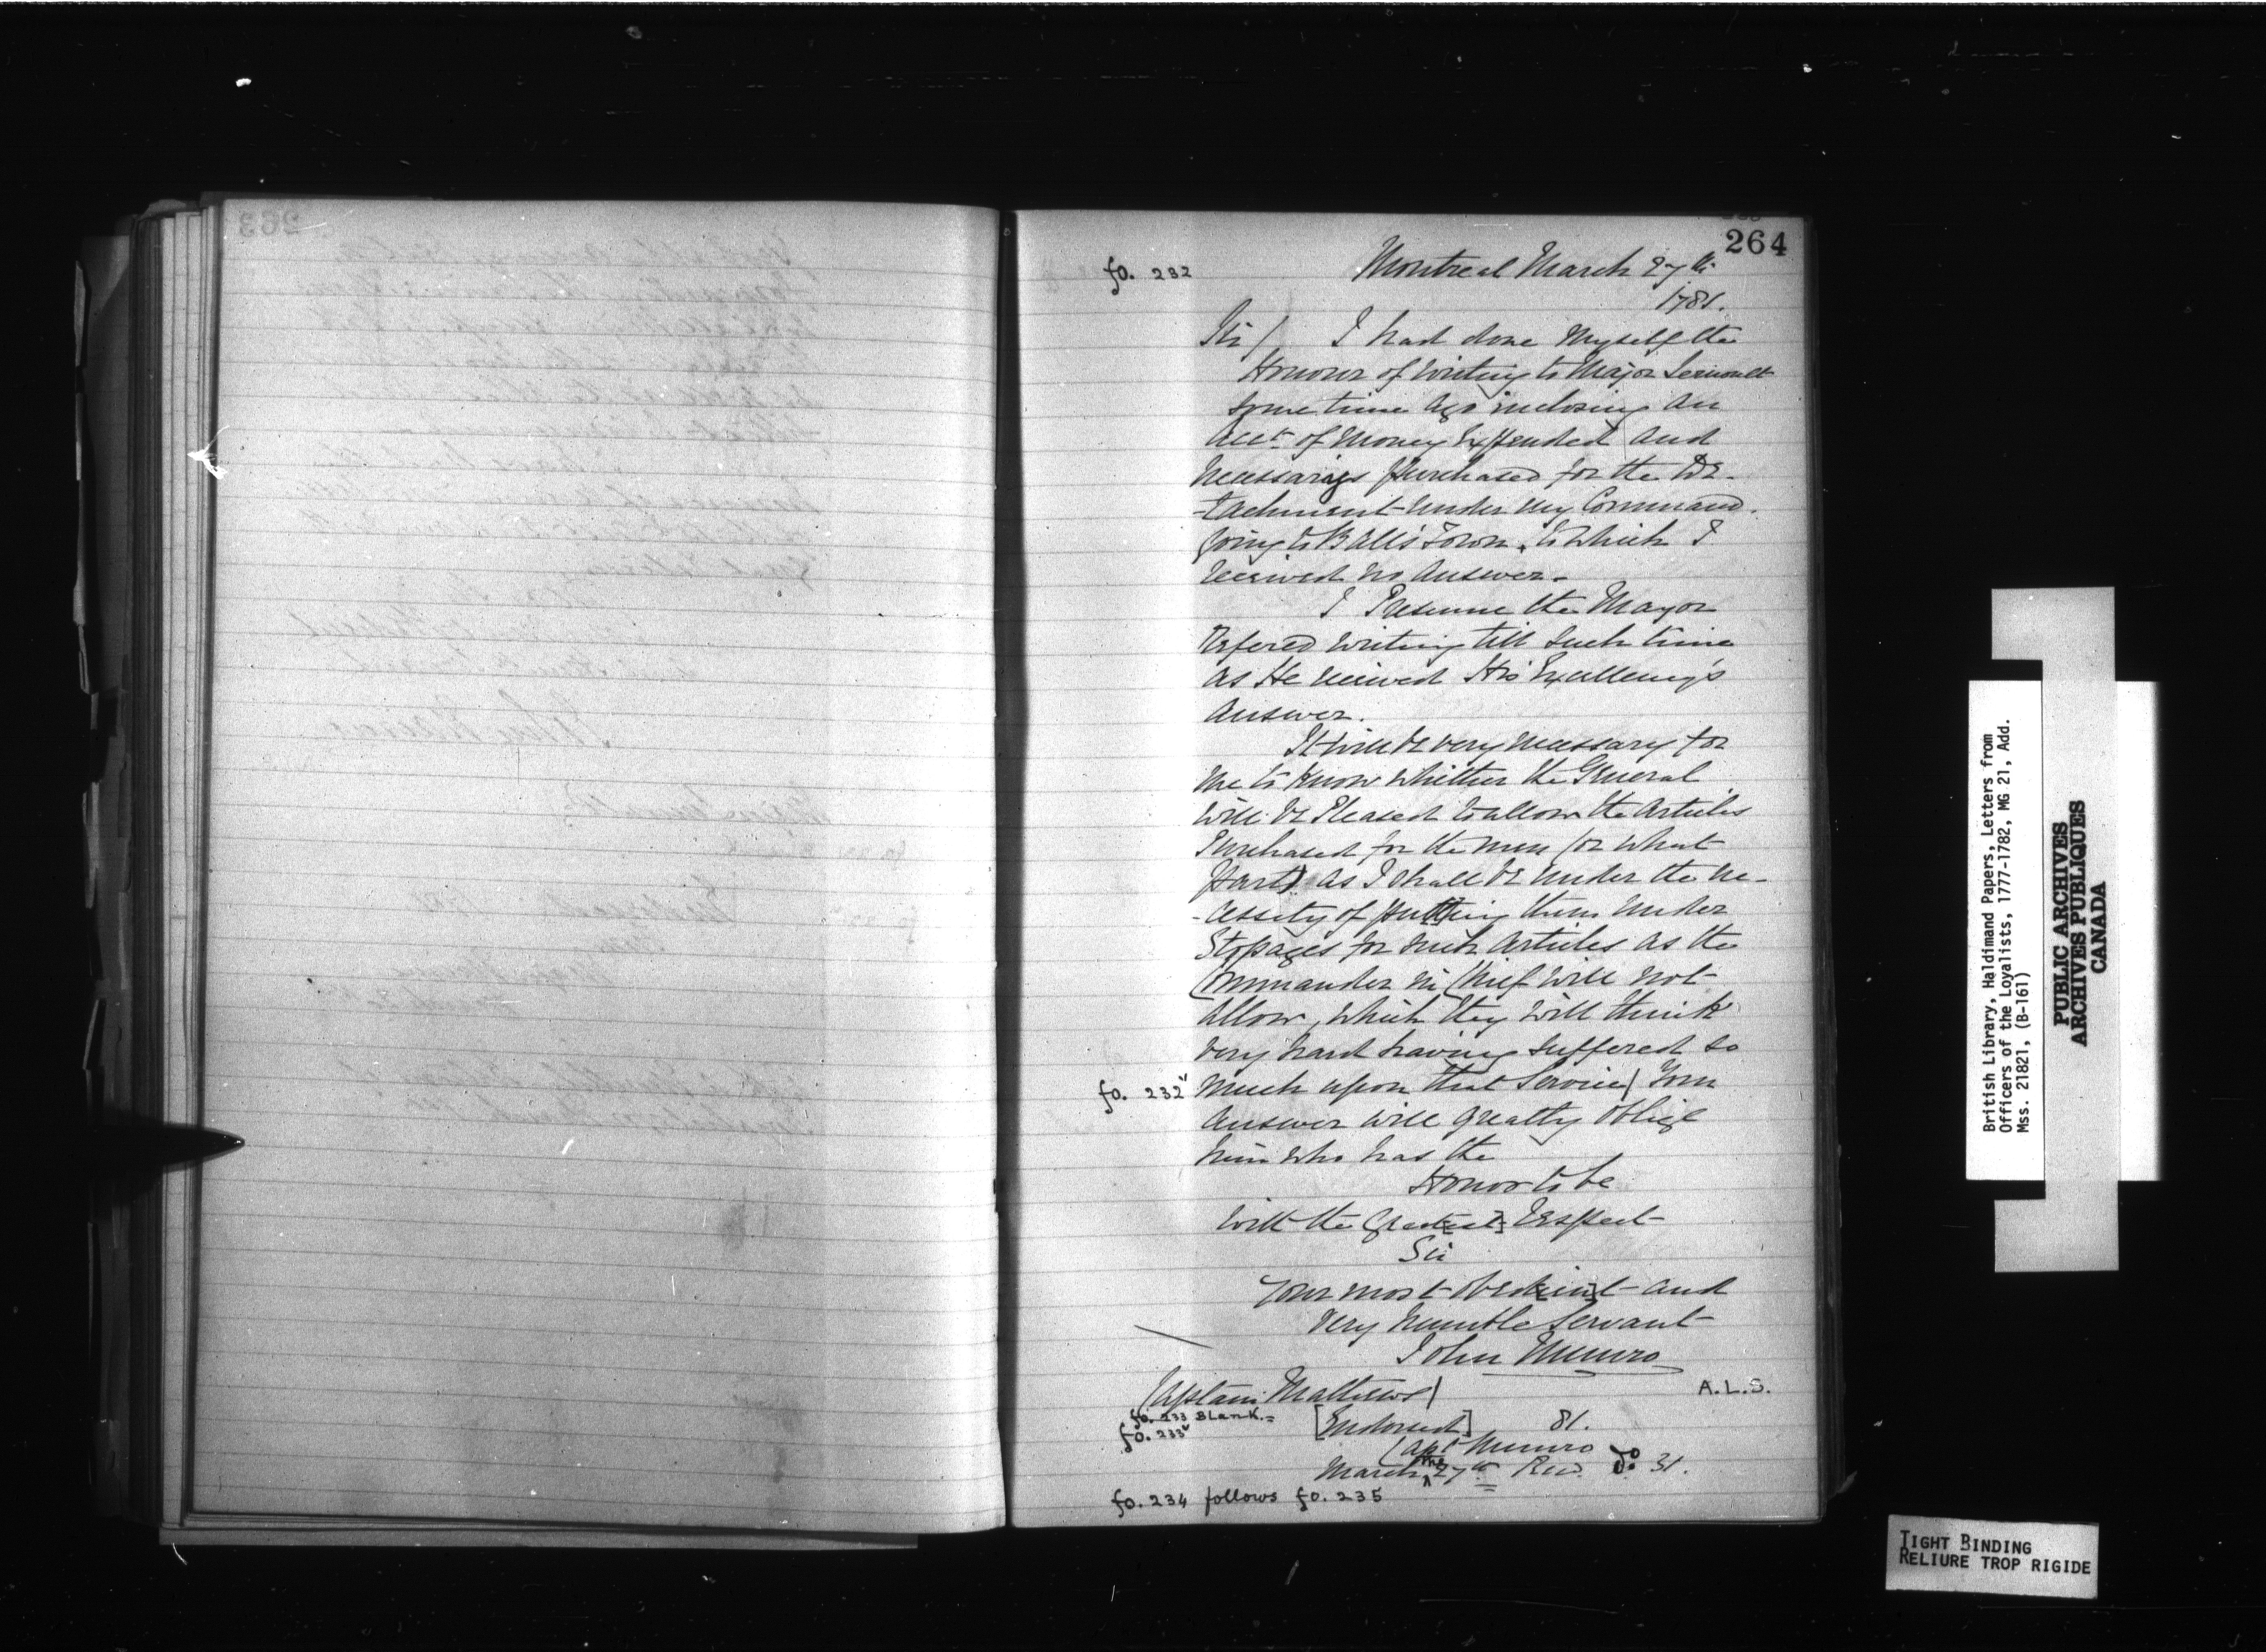 264
fo. 232
Montreal March 27th
1781.
Sir/ I had done Myself the
Honour of Writing to Major Lernoult
some time ago inclosing an
Acct. of Money Expended and
Necessaries Purchased for the De-
-tachment under my Command.
going to Balls Town, to which I
received no Answer.
I Presume the Mayor
Defered writing till such time
as He received His Excellency's
Answer.
It will be very necessary for
me to know whether the General
will be Pleased to allow the Articles
Purchased for the men (or what
part) as I shall be under the ne-
-cessity of putting them under
Stopages for such Articles as the
Commander in Chief will not
Allow, which they will think
very hard having suffered so
fo. 232v
much upon that Service/ Your
Answer will greatly oblige
him who has the
Honor to be
with the Great[est] Respect
Sir
Your most obed[ien]t and
very humble Servant
John Munro
Captain Mathews/
A.L.S.
fo. 233 Blank.=
fo. 233v
[Endorsed] 81.
Capt Munro
March the 27th Recd. Do. 31.
fo. 234 follows fo. 235
British Library, Haldimand Papers, Letters from
Officers of the Loyalists, 1777-1782, MG 21, Add.
Mss. 21821, (B-161)
PUBLIC ARCHIVES
ARCHIVES PUBLIQUES
CANADA
TIGHT BINDING
RELIURE TROP RIGIDE